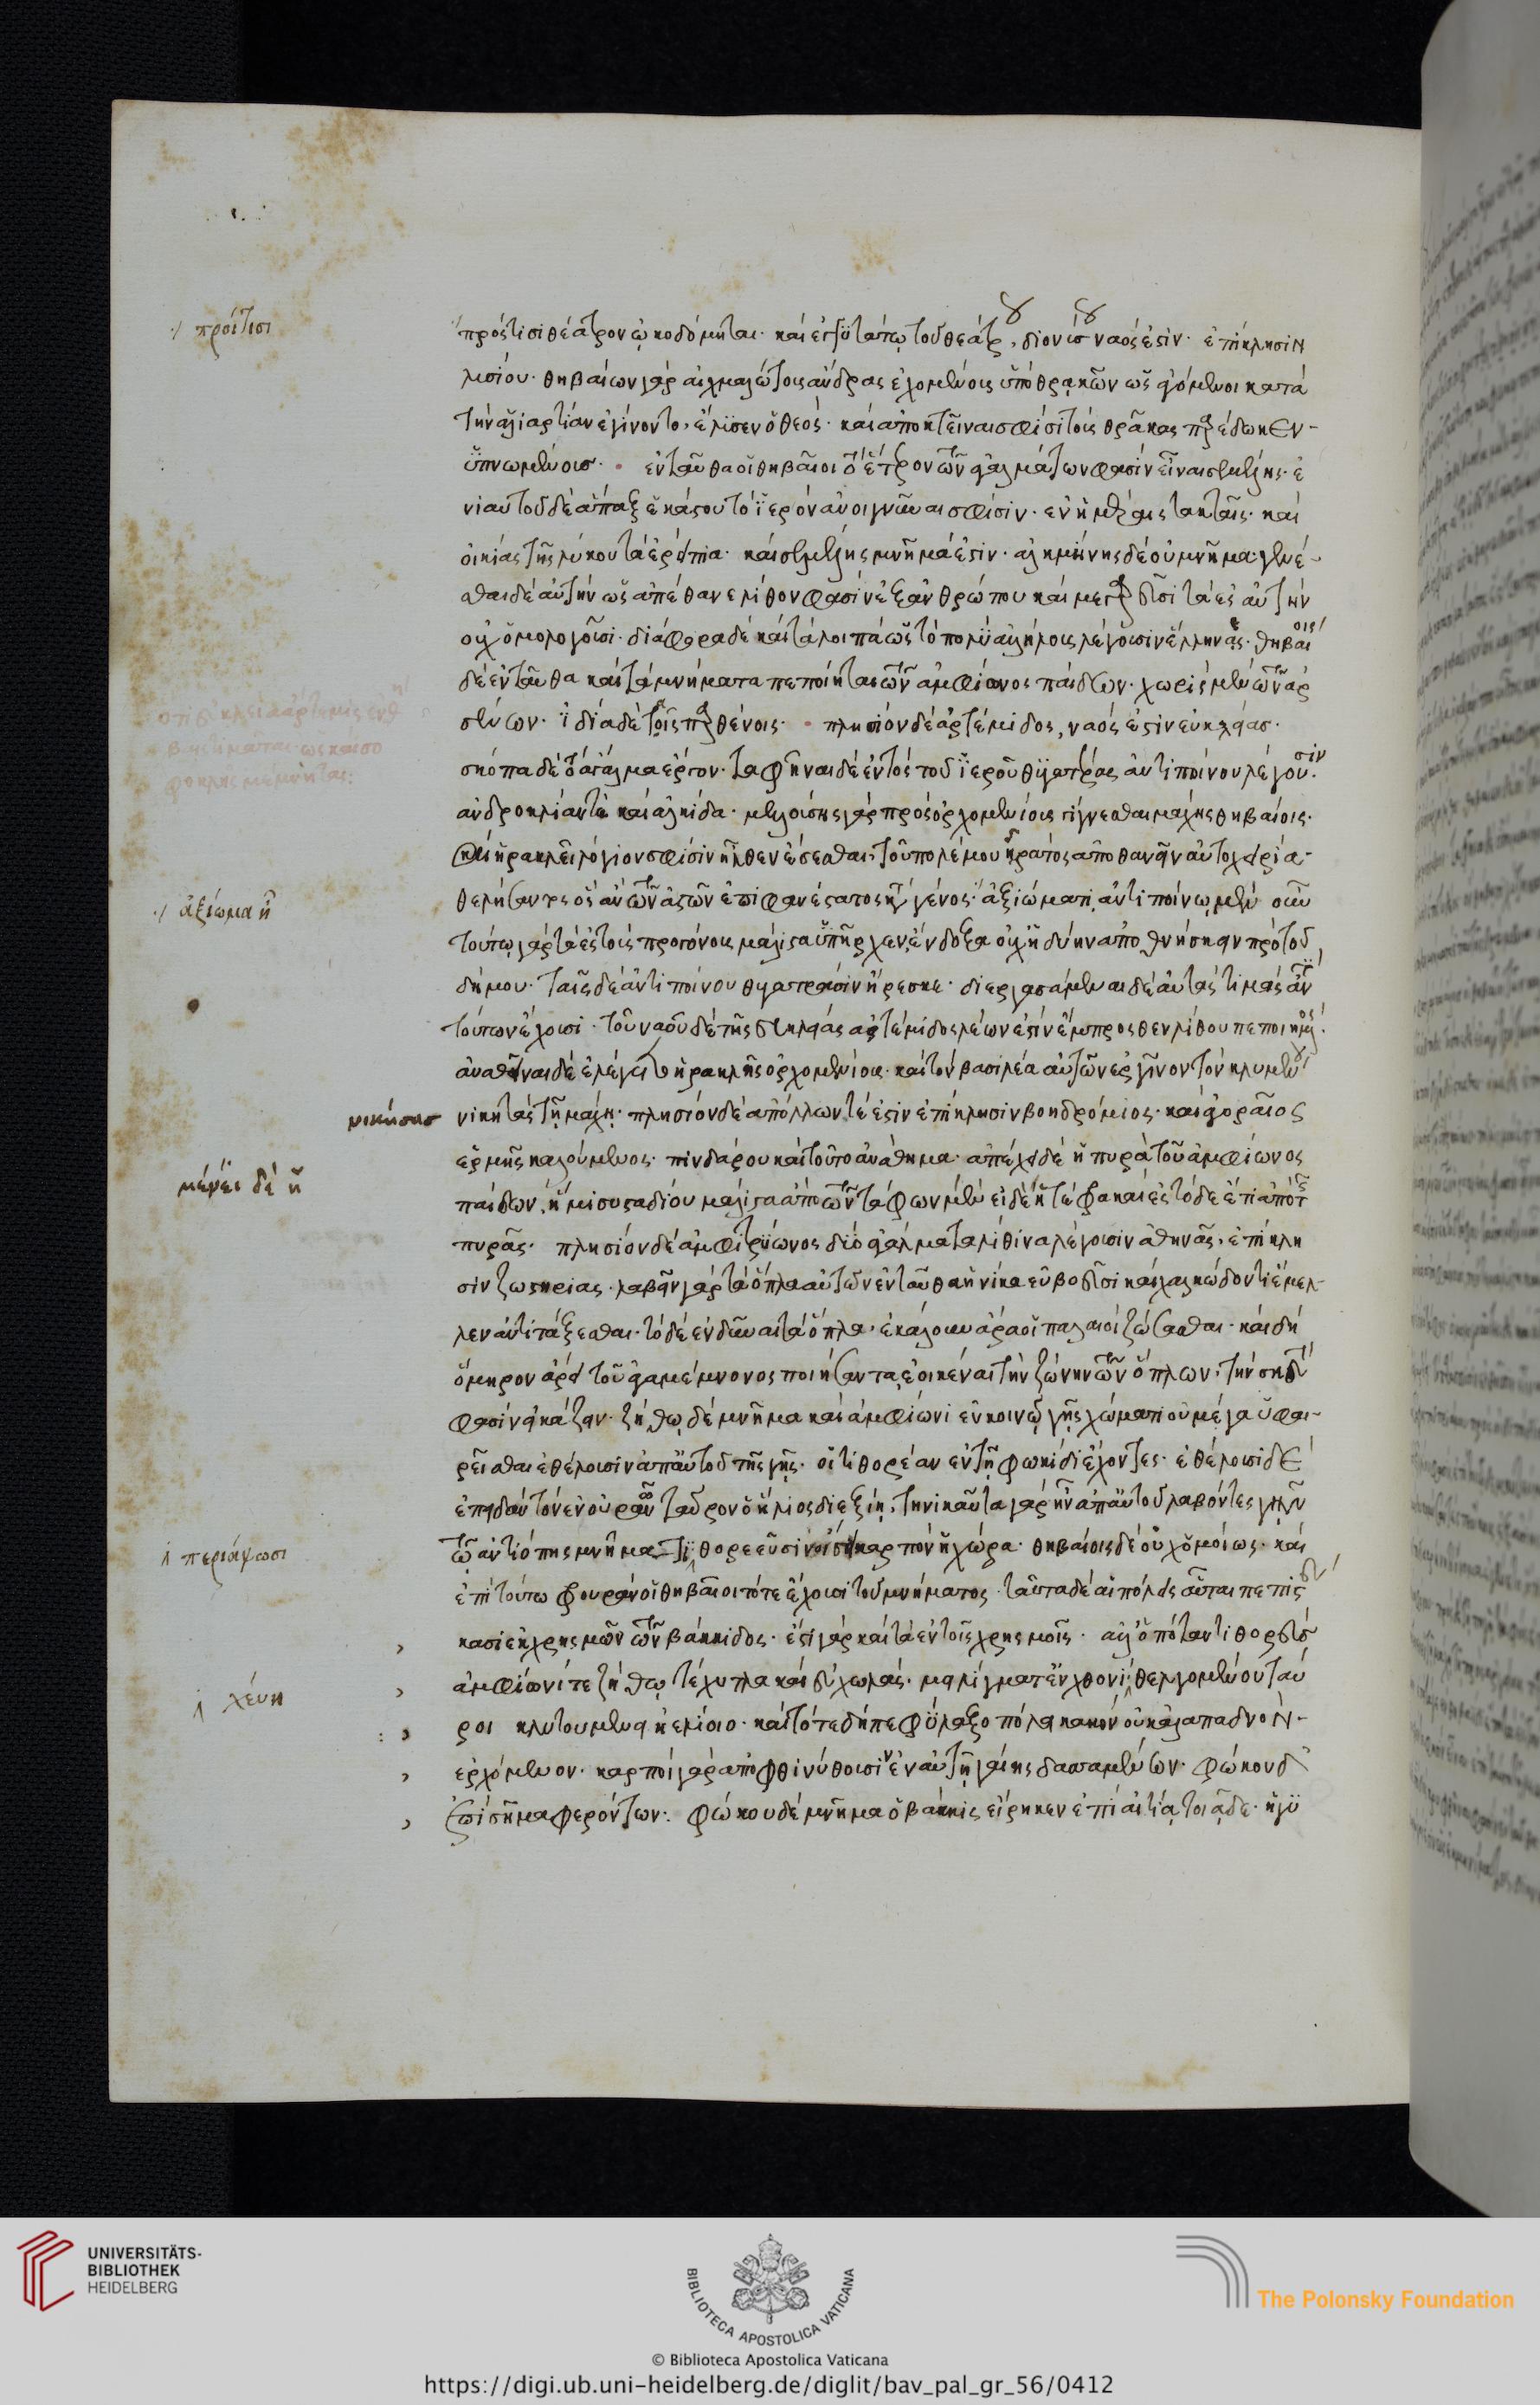 προίτισι
πρόςτισι θέατρον ᾠκοδόμηται· καὶ ἐγγυτάτω τοῦ θεάτρου διονύσου ναός ἐστιν· ἐπίκλησιν
λυσίου· θηβαίων γὰρ αἰχμαλώτους ἄνδρας ἐχομένους ὑπὸ θρακῶν ὡς ἀγόμενοι κατὰ
τὴν ἁλιαρτίαν ἐγίνοντο, ἔλυσεν ὁ θεός· καὶ ἀποκτεῖναι σφίσι τοὺς θρᾶκας παρέδωκεν
ὑπνωμένους· ἐνταῦθα οἱ θηβαῖοι τὸ ἕτερον τῶν ἀγαλμάτων φασὶν εἶναι σεμέλης· ἐ
νιαυτοῦ δὲ ἅπαξ ἑκάστου τὸ ἱερὸν ἀνοιγνύναι σφίσιν· ἐν ἡμέραις τακταῖς· καὶ
οἰκίας τῆς λύκου τὰ ἐρείπια· καὶ σεμέλης μνῆμά ἐστιν· ἀλκμήνης δὲ οὐ μνῆμα· γενέ
σθαι δὲ αὐτὴν ὡς ἀπέθανε λίθον φασὶν ἐξ ἀνθρώπου καὶ μεγαρεῦσι τὰ ἐς αὐτὴν
οὐχ ὁμολογοῦσι· διάφορα δὲ καὶ τὰ λοιπὰ ὡς τὸ πολὺ ἀλλήλοις λέγουσιν ἕλληνες· θηβαίοις
δὲ ἐνταῦθα καὶ τὰ μνήματα πεποίηται τῶν ἀμφίονος παίδων· χωρὶς μὲν τῶν ἀρ
σένων· ἰδίᾳ δὲ ταῖς παρθένοις· πλησίον δὲ ἀρτέμιδος, ναός ἐστιν εὐκλείας·
σκόπα δὲ τὸ ἄγαλμα ἔργον· ταφῆναι δὲ ἐντὸς τοῦ ἱεροῦ θυγατέρας ἀντιποίνου λέγουσιν·
ἀνδροκλίαν τὲ καὶ ἀλκίδα· μελλούσης γὰρ πρὸς ὀρχομενίους γίγνεσθαι μάχης θηβαίοις·
καὶ ἡρακλεῖ λόγιον σφίσιν ἦλθεν ἔσεσθαι, τοῦ πολέμου κράτος ἀποθανεῖν αὐτοχειρία
θελήσαντος ὃς ἂν τῶν ἀστῶν ἐπιφανέστατος κατὰ γένος· ἀξιώματι, ἀντιποίνῳ μὲν οὖν
ἀξίωμα ἢ
τούτῳ γὰρ τὰ ἐς τοὺς προγόνους μάλιστα ὑπῆρχεν, ἔνδοξα οὐχ ἡδὺ ἦν ἀποθνήσκειν πρὸ τοῦ
δήμου· ταῖς δὲ ἀντιποίνου θυγατράσιν ἤρεσκε· διεργασάμεναι δὲ αὑτὰς τιμὰς ἀντὶ
τούτων ἔχουσι· τοῦ ναοῦ δὲ τῆς εὐκλείας ἀρτέμιδος λέων ἐστὶν ἔμπροσθεν λίθου πεποιημένος·
ἀναθεῖναι δὲ ἐλέγετο ἡρακλῆς ὀρχομενίους· καὶ τὸν βασιλέα αὐτῶν ἐργῖνον τὸν κλυμένου
νικήσας
νικητὰς τῇ μάχῃ· πλησίον δὲ ἀπόλλων τέ ἐστιν ἐπίκλησιν βοηδρόμιος· καὶ ἀγοραῖος
ἑρμῆς καλούμενος· πινδάρου καὶ τοῦτο ἀνάθημα· ἀπέχει δὲ ἡ πυρὰ τοῦ ἀμφίωνος
μένει δὲ ἡ
παίδων, ἥμισυ σταδίου μάλιστα ἀπὸ τῶν τάφων μὲν εἰ δὲ ἡ τέφρα καὶ ἐς τόδε ἔτι ἀπὸ τῆς
πυρᾶς· πλησίον δὲ ἀμφιτρύωνος δύο ἀγάλματα λίθινα λέγουσιν ἀθηνᾶς, ἐπίκλη
σιν ζωστηρίας· λαβεῖν γὰρ τὰ ὅπλα αὐτὸν ἐνταῦθα ἡνίκα εὐβοεῦσι καὶ χαλκώδοντι ἔμελ
λεν ἀντιτάξεσθαι· τὸ δὲ ἐνδῦναι τὰ ὅπλα, ἐκάλουν ἄρα οἱ παλαιοὶ ζώσασθαι· καὶ δὴ
ὅμηρον ἄρει τοῦ ἀγαμέμνονος ποιήσαντα, ἐοικέναι τὴν ζώνην τῶν ὅπλων, τὴν σκευὴν
φασὶν εἰκάζειν· ζήθῳ δὲ μνῆμα καὶ ἀμφίωνι ἐν κοινῷ γῆς χῶμά τι οὐ μέγα ὑφαι
ρεῖσθαι ἐθέλουσιν ἀπ' αὐτοῦ τῆς γῆς· οἱ τιθορέαν ἐν τῇ φωκίδι ἔχοντες· ἐθέλουσι δὲ
ἐπειδὰν τὸν ἐν οὐρανῷ ταῦρον ὁ ἥλιος διεξίῃ, τηνικαῦτα γὰρ ἢν ἀπ' αὐτοῦ λαβόντες γῆν
τῷ ἀντιόπης μνήματι τιθορεεῦσιν οἴσει καρπὸν ἡ χώρα· θηβαίοις δὲ οὐχ ὁμοίως· καὶ
περιάψωσι
ἐπὶ τούτῳ φρουρὰν οἱ θηβαῖοι τότε ἔχουσι τοῦ μνήματος· ταῦτα δὲ αἱ πόλεις αὗται πεπιστεύ
κασι ἐκ χρησμῶν τῶν βάκιδος· ἔστι γὰρ καὶ τὰ ἐν τοῖς χρησμοῖς· ἀλλ' ὁπόταν τιθορεὺς
ἀμφίωνί τε ζήθῳ τέ χυτλα καὶ εὐχωλὰς· μειλίγματ' ἐν χθονὶ θελγομένου ταύ
χεύῃ
ροι κλυτοῦ μένει ἠελίοιο· καὶ τότε δὴ πεφύλαξο πόλει κακὸν οὐκ ἀλαπαδνὸν
ἐρχόμενον· καρποὶ γὰρ ἀποφθινύθουσιν ἐν αὐτῇ γαίης δασαμένων· φώκου δ
ἐπὶ σῆμα φερόντων: φώκου δὲ μνῆμα ὁ βάκις εἴρηκεν ἐπὶ αἰτίᾳ τοιᾷδε· ἡ γυ
UNIVERSITÄTS-
BIBLIOTHEK
HEIDELBERG
BIBLIOTECA APOSTOLICA VATICANA
The Polonsky Foundation
© Biblioteca Apostolica Vaticana
https://digi.ub.uni-heidelberg.de/diglit/bav_pal_gr_56/0412